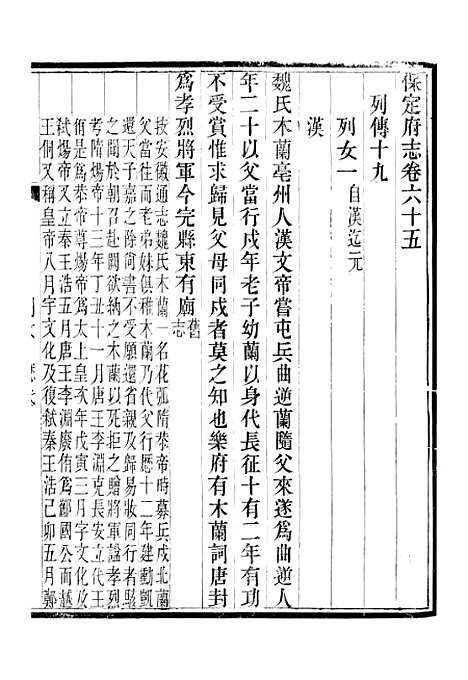 保定府志卷六十五
列傳十九
列女一自漢迄元
漢
魏氏木蘭亳州人漢文帝嘗屯兵曲逆蘭隨父來遂爲曲逆人
年二十以父當行戍年老子幼蘭以身代長征十有二年有功
不受賞惟求歸見父母同戍者莫之知也樂府有木蘭詞唐封
爲孝烈將軍今完縣東有廟舊志
按安徽通志魏氏木蘭一名花弧隋恭帝時募兵戍北蘭
父當往而老弟妹俱稚木蘭乃代父行歴十二年建勳凱
還天子嘉之除尚書不受願還省親及歸易妝同行者駭
之聞於朝召赴闕欲納之木蘭以死拒之贈將軍諡孝烈
考隋煬帝十三年丁丑十一月唐王李淵克長安立代王
侑是爲恭帝尊煬帝爲太上皇次年戊寅三月宇文化及
弒煬帝又立秦王浩五月唐王李淵廢侑爲酅國公而越
王侗又稱皇帝八月宇文化及復弒秦王浩己卯五月鄭